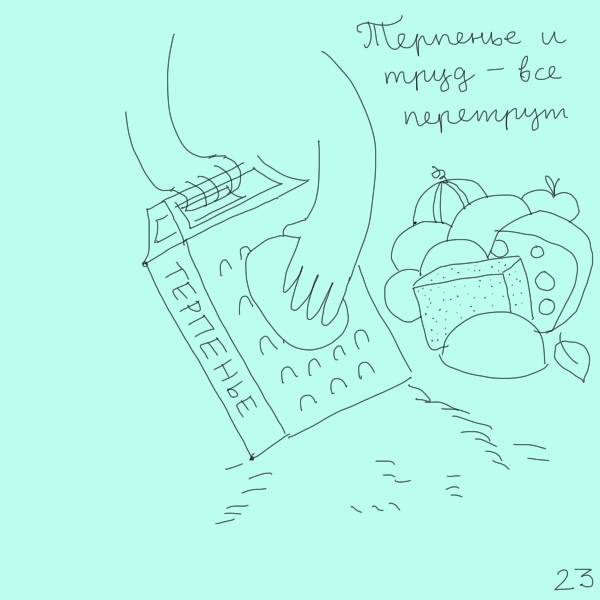 Терпенье и
труд - все
перетрут
ТЕРПЕНЬЕ
23